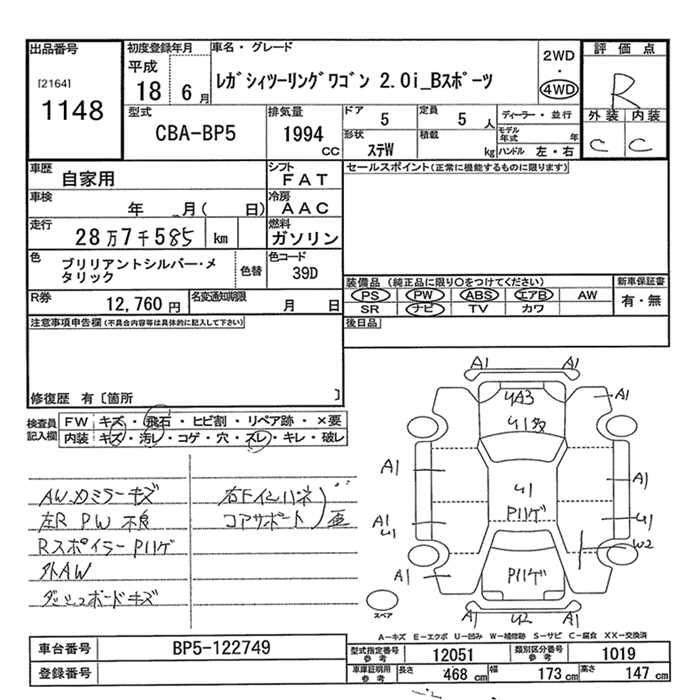 出品番号
[2164]
1148
初度登録年月
平成
18 6 月
車名・グレード
ﾚｶﾞｼｨﾂｰﾘﾝｸﾞﾜｺﾞﾝ 2.0i_Bｽﾎﾟｰﾂ
2WD
・
4WD
評価点
R
外装 内装
C C
型式
CBA-BP5
排気量
1994
CC
ドア
5
定員
5 人
形状
ｽﾃW
積載
kg
ディーラー・並行
モデル年式 年
ハンドル 左・右
車歴
自家用
シフト
FAT
車検
年 月( 日)
冷房
AAC
走行
28万7千585 km
燃料
ガソリン
色
ブリリアントシルバー・メタリック
色替
色コード
39D
R券
12,760 円
名変通知期限
月 日
セールスポイント(正常に機能するものに限ります)
装備品(純正品に限り○をつけてください)
PS PW ABS エアB AW
SR ナビ TV カワ
新車保証書
有・無
後日品
注意事項申告欄(不具合内容等は具体的に記入して下さい)
修復歴 有〔箇所 〕
検査員記入欄
FW キズ・飛石・ヒビ割・リペア跡・×要
内装 キズ・汚レ・コゲ・穴・スレ・キレ・破レ
AW.カミラーキズ
左R PW 不良
RスポイラーPハゲ
外AW
ダッシュボードキズ
右Fインパネ
コアサポート
A1 A1
UA3
U1多
A1
A1
A1
U1
Pハゲ
A1
U1
U1
W2
A1
Pハゲ
A1 U2 A1
スペア
A―キズ E―エクボ U―凹み W―補修跡 S―サビ C―腐食 XX―交換済
車台番号
BP5-122749
登録番号
型式指定番号
参考
12051
類別区分番号
参考
1019
車庫証明用
参考
長さ
468 cm
幅
173 cm
高さ
147 cm